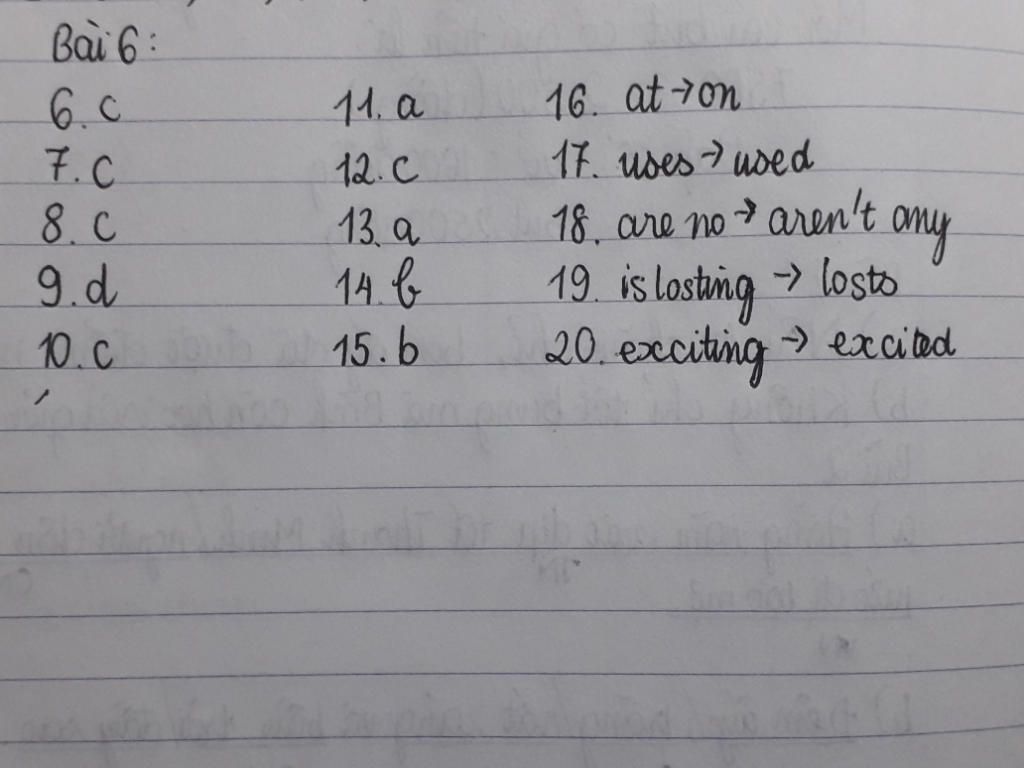 Bài 6:
6. c 11. a 16. at → on
7. c 12. c 17. uses → used
8. c 13. a 18. are no → aren't any
9. d 14. b 19. is losting → losts
10. c 15. b 20. exciting → excited